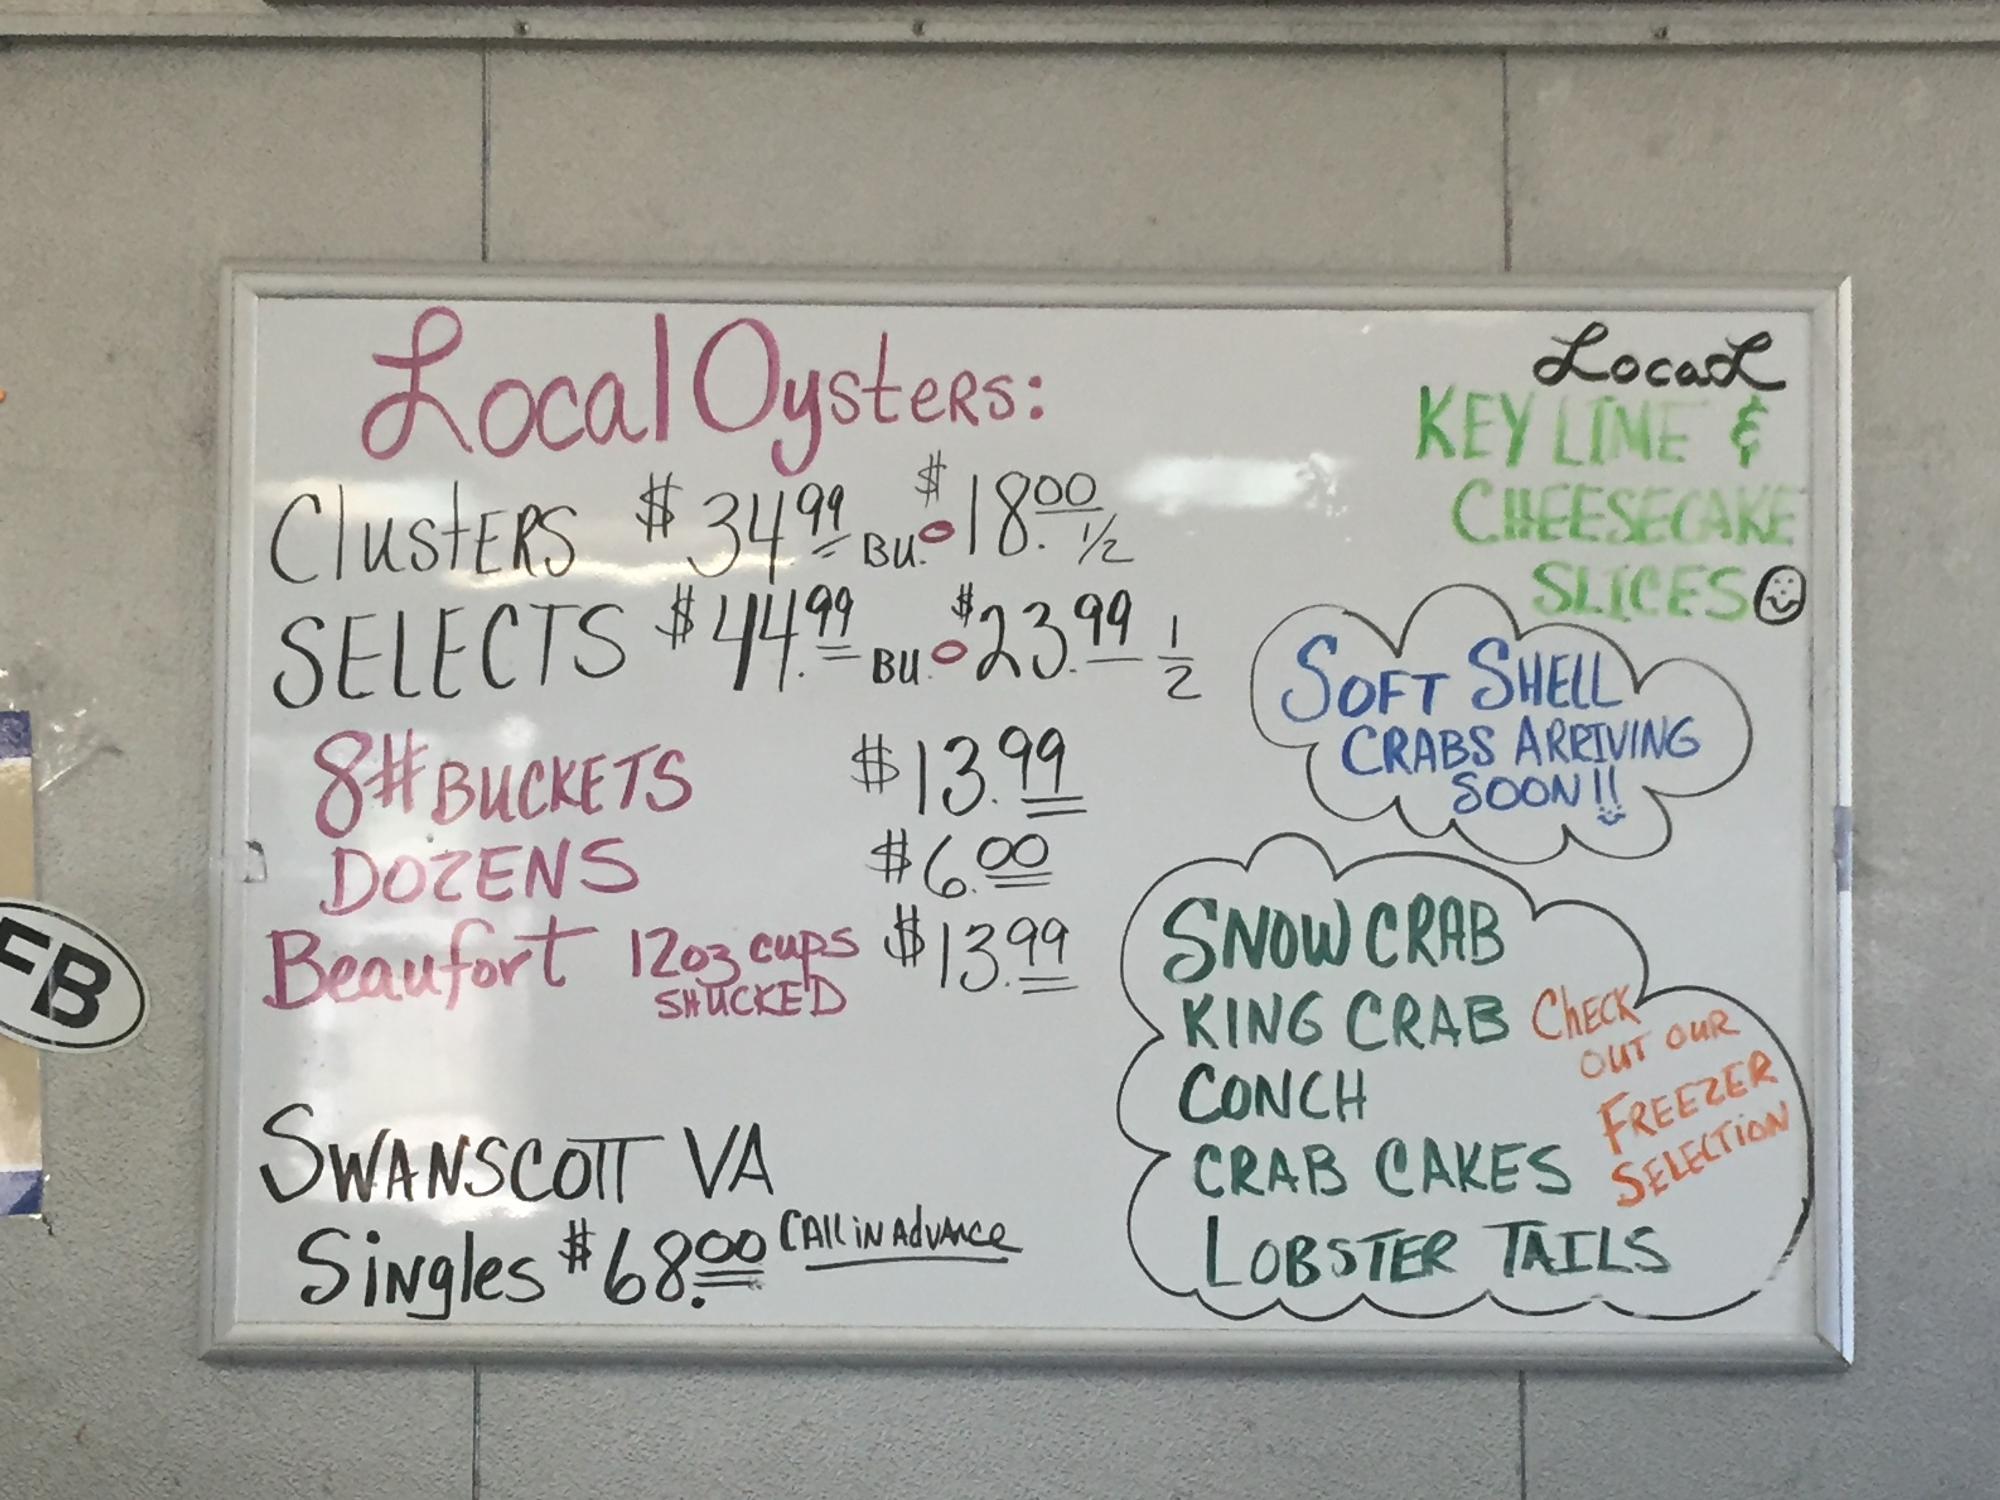 Local Oysters:
Clusters $34.99 BU. $18.00 1/2
SELECTS $44.99 BU. $23.99 1/2
8# BUCKETS $13.99
DOZENS $6.00
Beaufort 12oz cups SHUCKED $13.99
SWANSCOTT VA
Singles $68.00 CAll iN AdvANce
LocaL
KEY LIME &
CHEESECAKE
SLICES
SOFT SHELL
CRABS ARRIVING
SOON!!
SNOW CRAB
KING CRAB
CONCH
CRAB CAKES
LOBSTER TAILS
CHECK
OUT OUR
FREEZER
SELECTION
FB